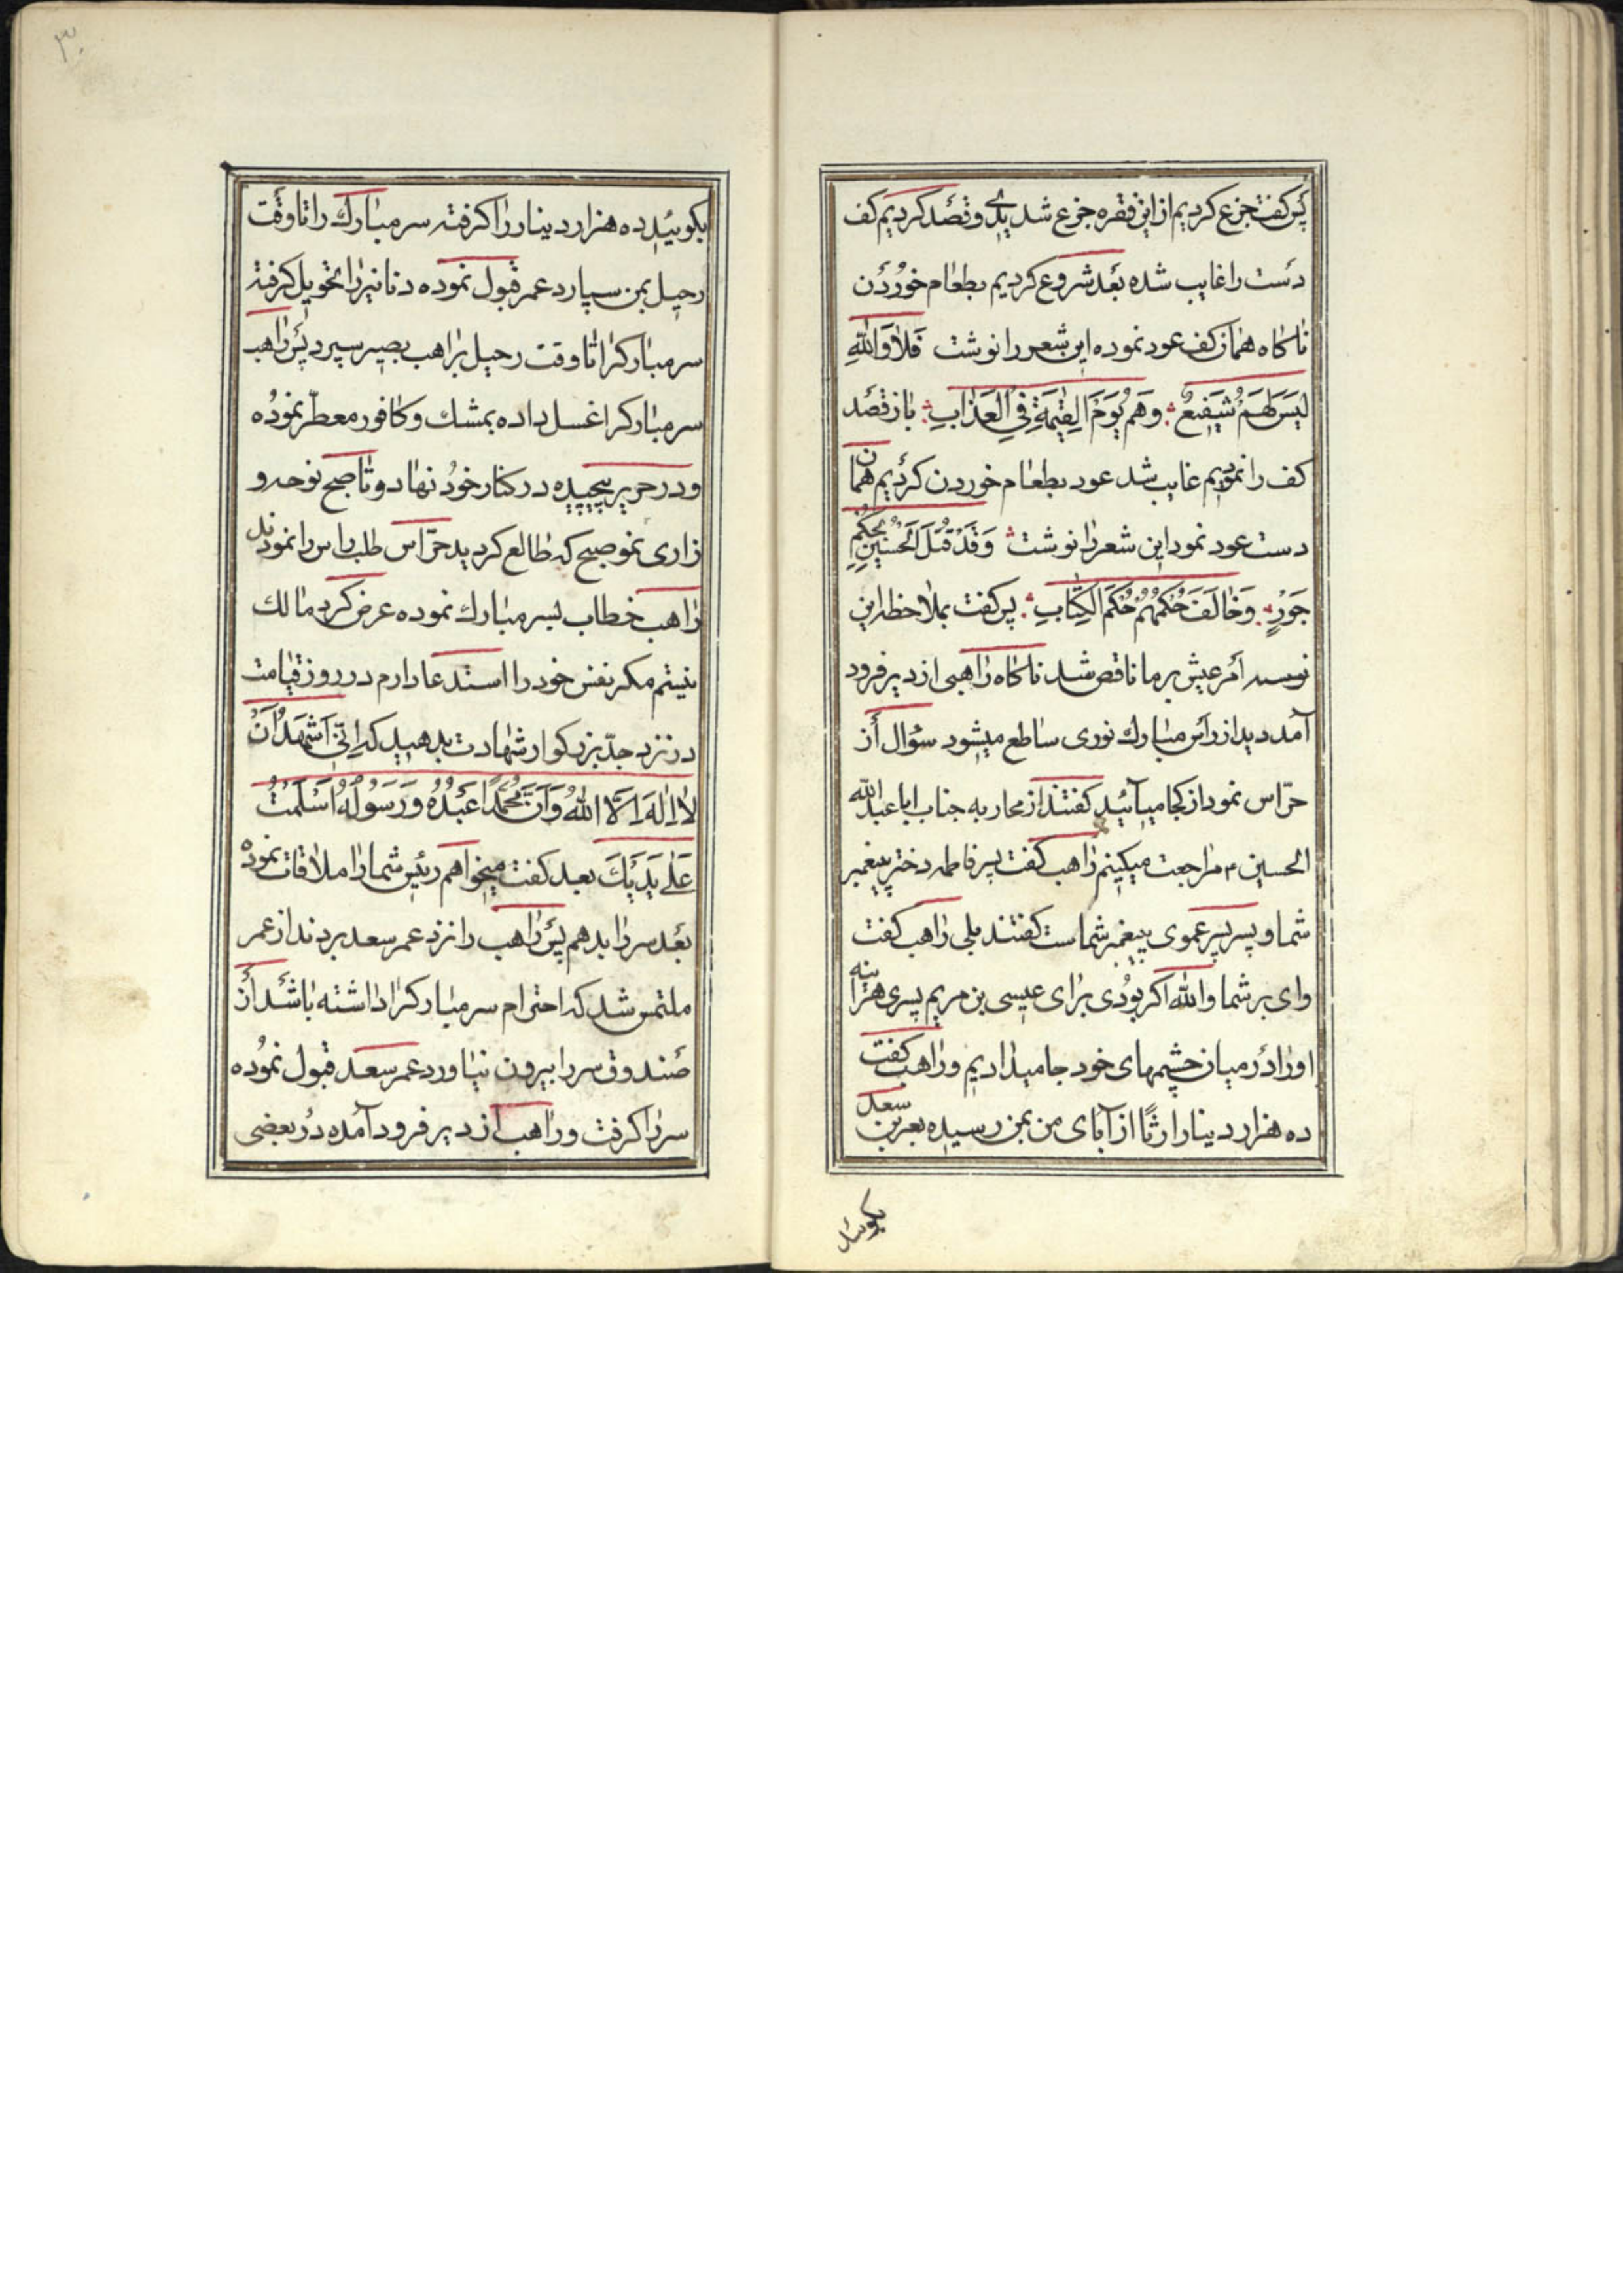 پس گفت جزع کردیم از این فقره جزع شدیدی و قصد کردیم کف
دست را غایب شده بعد شروع کردیم بطعام خوردن
ناگاه همان کف عود نموده این شعر را نوشت فَلاٰوَاللّٰهِ
لَیْسَ لَهُمْ شَفِیعٌ وَهُمْ یَوْمَ الْقِیٰمَةِ فِی الْعَذٰابِ باز قصد
کف را نمودیم غایب شد عود بطعام خوردن کردیم همان
دست عود نمود این شعر را نوشت وَقَدْ قُتِلَ الْحُسَیْنُ بِحُکْمِ
جَوْرٍ وَخٰالَفَ حُکْمُهُمْ حُکْمَ الْکِتٰابِ پس گفت بملاحظه این
امر عیش بر ما ناقص شد ناگاه راهبی از دیر فرود
آمد دید از رأس مبارك نوری ساطع میشود سؤال از
حرّاس نمود از کجا میآئید گفتند از محاربه جناب ابا عبدالله
الحسین ٤ مراجعت میکینم راهب گفت پسر فاطمه دختر پیغمبر
شما و پسر پسر عموی پیغمبر شماست گفتند بلی راهب گفت
وای بر شما والله اگر بودی برای عیسی بن مریم پسری هراینه
او را در میان خشمهای خود جا میداديم و راهب گفت
ده هزار دینار ارثًا از آبای من بمن رسیده بعمر بن سعد
بگوئید
۳۰
بگوئید ده هزار دینار را گرفته سر مبارك را تا وقت
رحیل بمن سپارد عمر قبول نموده دنانیر را تحویل گرفته
سر مبارکرا تا وقت رحیل براهب بصیر سپرد پس راهب
سر مبارکرا غسل داده بمشك و کافور معطّر نموده
و در حریر پیچیده در کنار خود نهاد و تا صبح نوحه و
زاری نمو صبح که طالع کردید حرّاس طلب راس را نمودند
راهب خطاب بسر مبارك نموده عرض کرد مالك
نیستم مکر نفس خود را استدعا دارم در روز قیامت
در نزد جدّ بزرکوار شهادت بدهید که اِنّی اَشْهَدُ اَنْ
لاٰ اِلٰهَ اِلاَّ اللّٰهُ وَاَنَّ مُحَمَّدًا عَبْدُهُ وَرَسُولُهُ اَسْلَمْتُ
عَلٰی یَدَیْكَ بعد گفت میخواهم رئیس شما را ملاقات نموده
بعد سر را بدهم پس راهب را نزد عمر سعد بردند از عمر
ملتمس شد که احترام سر مبارکرا داشته باشد از
صندوق سر را بیرون نیاورد عمر سعد قبول نموده
سر را گرفت و راهب از دیر فرود آمده در بعضی